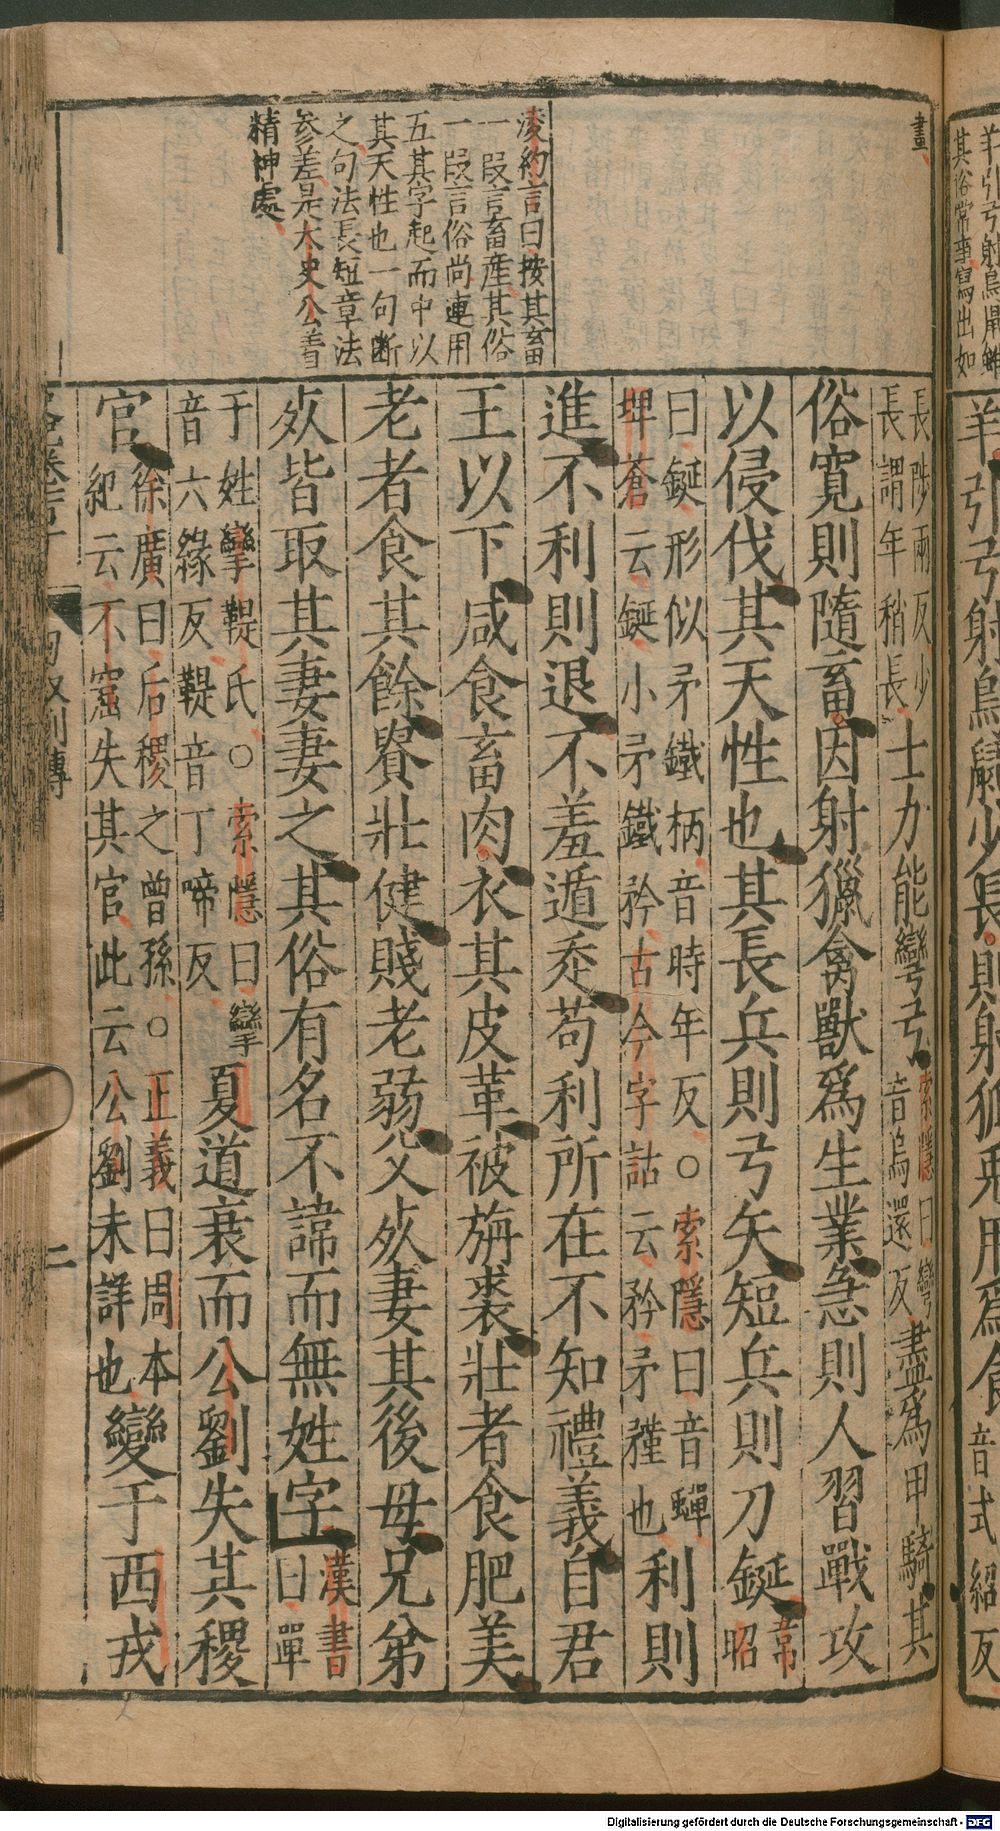 羊引弓射鳥鼠少長則射狐兎用爲食音式紹反
畫
長陟兩反少
長謂年稍長
士力能彎弓
索隱曰彎
音烏還反
盡爲甲騎其
俗寛則隨畜因射獵禽獸爲生業急則人習戰攻
以侵伐其天性也其長兵則弓矢短兵則刀鋋
韋昭
曰鋋形似矛鐵柄音時年反○索隱曰音蟬
埤蒼云鋋小矛鐵矜古今字詁云矜矛𥎊也
利則
進不利則退不羞遁赱苟利所在不知禮義自君
王以下咸食畜肉衣其皮革被旃裘壯者食肥美
老者食其餘貴壯健賤老弱父死妻其後母兄弟
死皆取其妻妻之其俗有名不諱而無姓字
漢書
曰單
于姓攣鞮氏○索隱曰攣
音六緣反鞮音丁啼反
夏道衰而公劉失其稷
官
徐廣曰后稷之曾孫○正義曰周本
紀云不窋失其官此云公劉未詳也
變于西戎
凌約言曰按其畜
一段言畜産其俗
一段言俗尚連用
五其字起而中以
其天性也一句斷
之句法長短章法
參差是太史公着
精神處
二
Digitalisierung gefördert durch die Deutsche Forschungsgemeinschaft - DFG